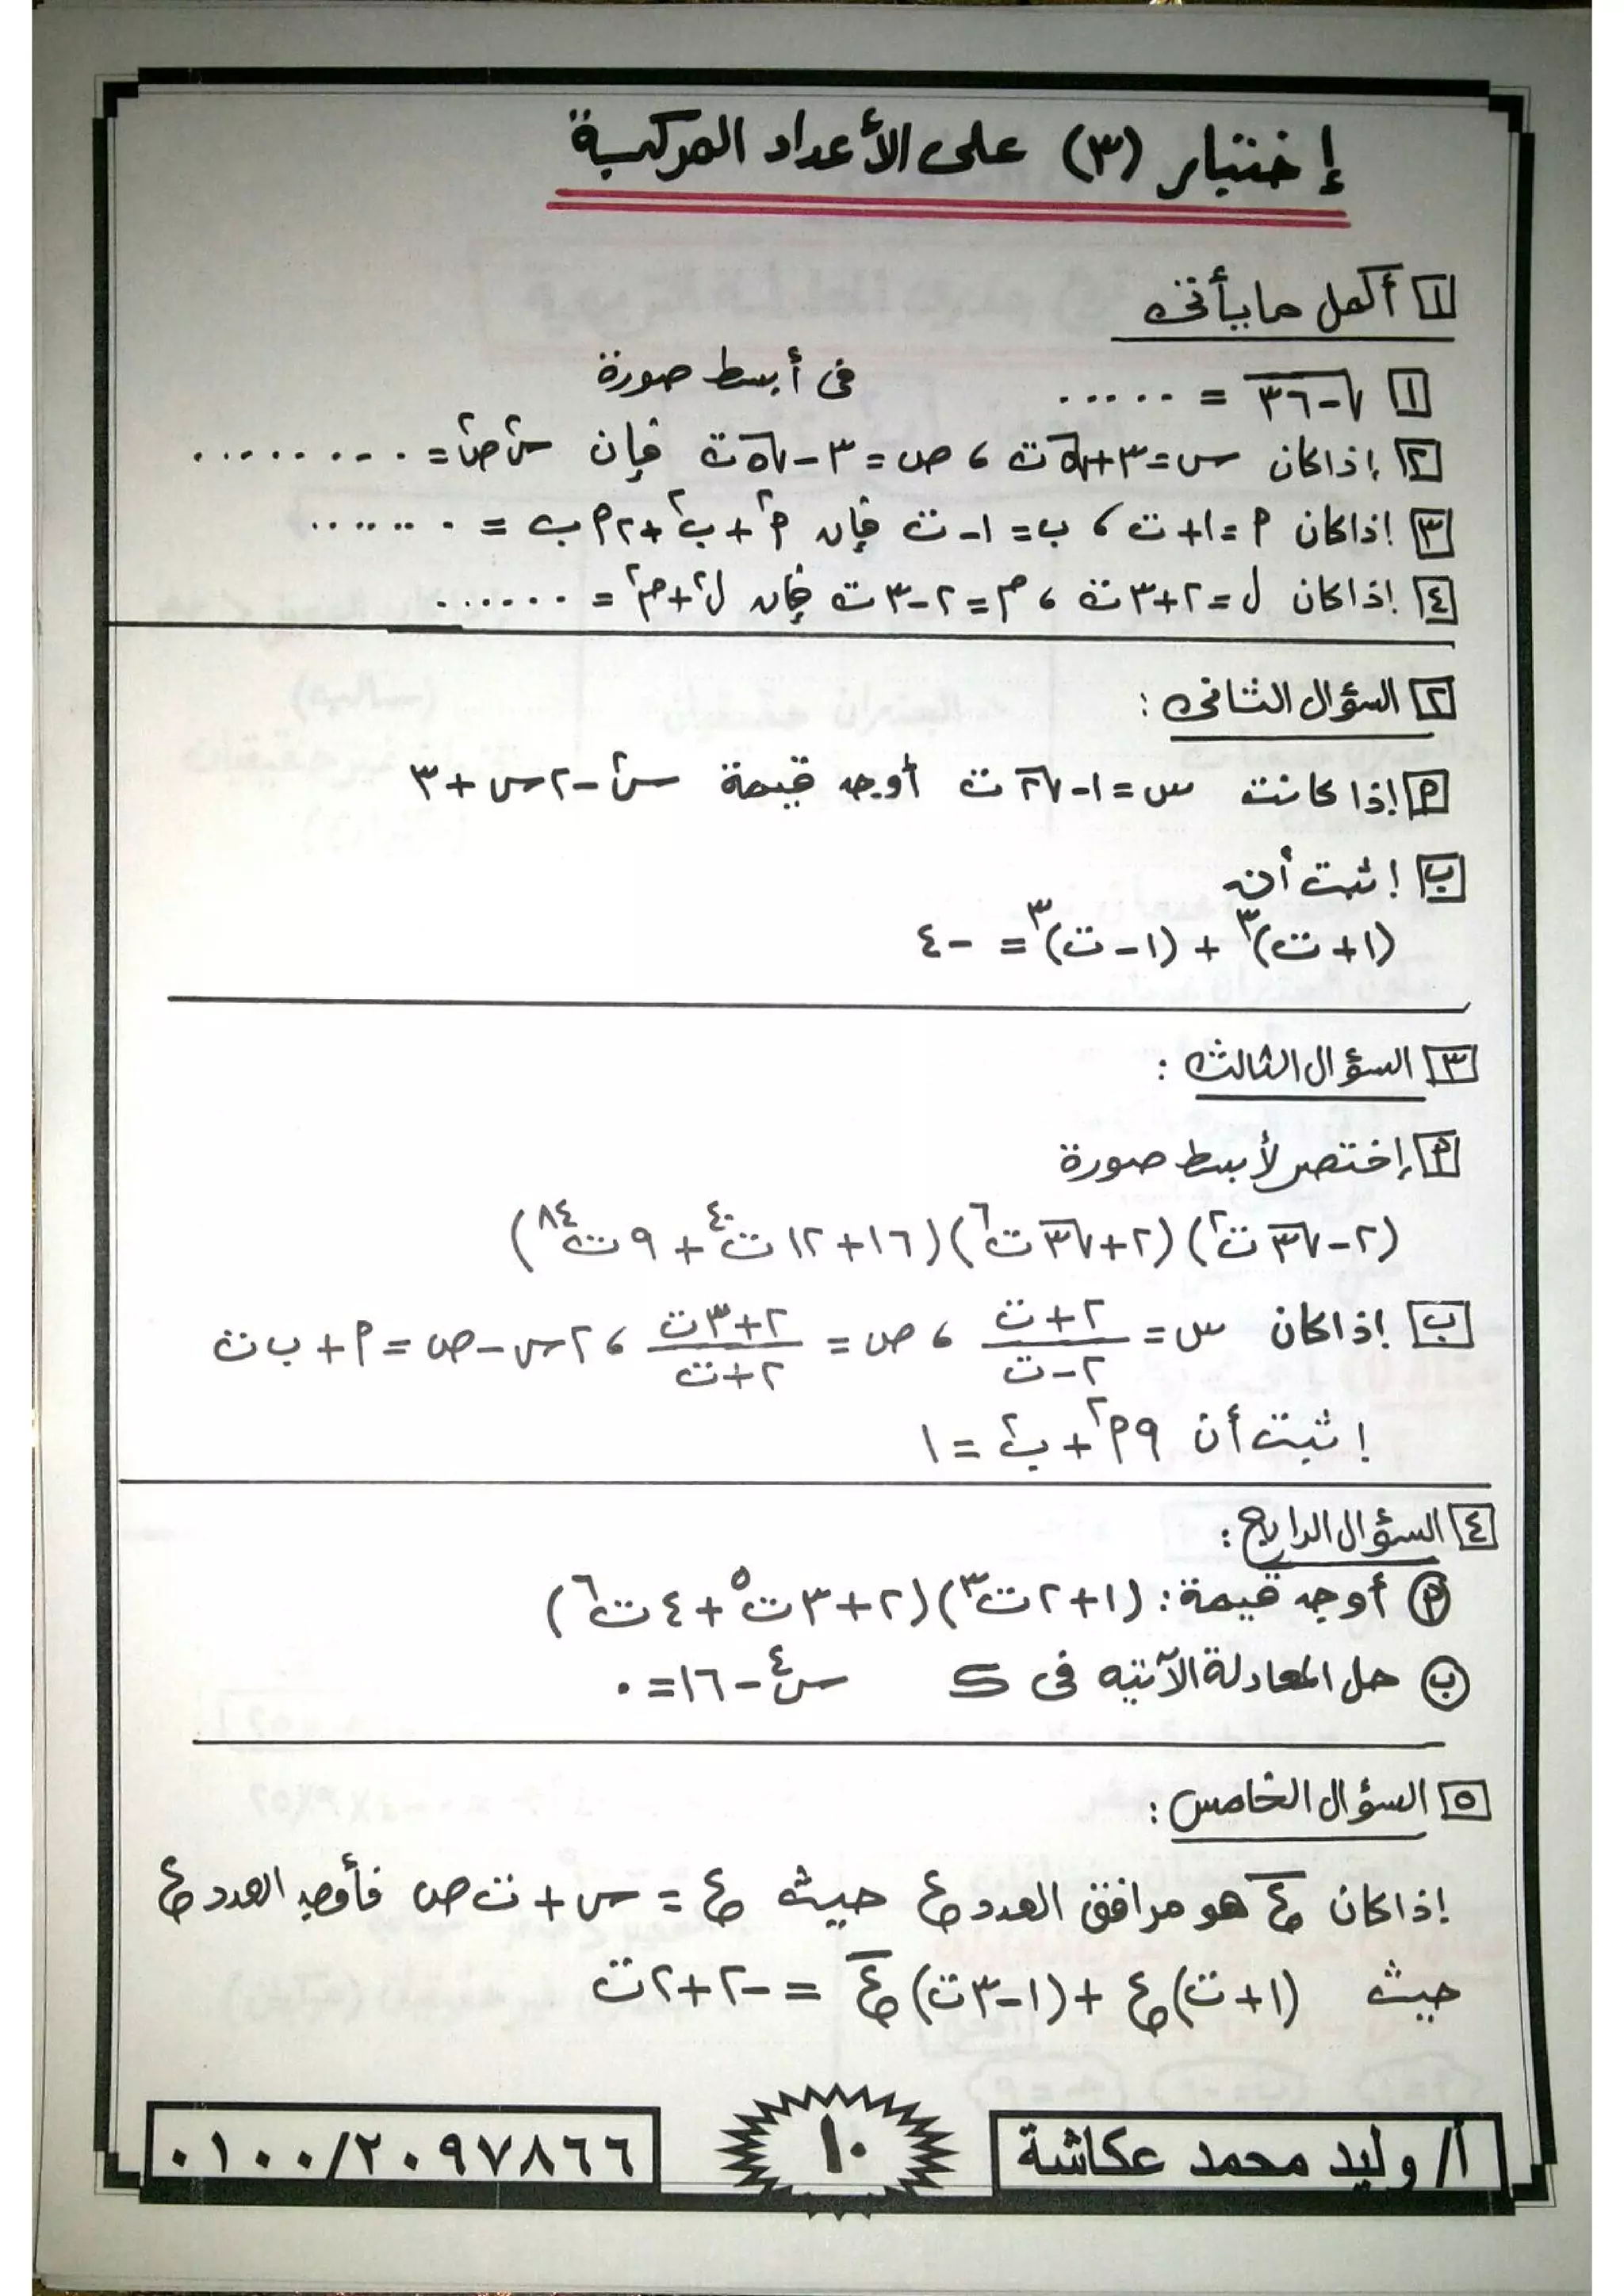 إختبار (٣) على الأعداد المركبة
١ أكمل ما يأتى
١ √-٣٦ = ..... فى أبسط صورة
٢ إذا كان س = ٣ + √٥ ت ، ص = ٣ - √٥ ت فإن س٢ ص٢ = .........
٣ إذا كان م = ١ + ت ، ب = ١ - ت فإن م٢ + ب٢ + ٢ م ب = .......
٤ إذا كان ل = ٢ + ٣ ت ، م = ٢ - ٣ ت فإن ل٢ + م٢ = ......
٢ السؤال الثانى :
م إذا كانت س = ١ - √٢ ت أوجد قيمة س٢ - ٢ س + ٣
ب إثبت أن
(١ + ت)٣ + (١ - ت)٣ = - ٤
٣ السؤال الثالث :
م إختصر لأبسط صورة
(٢ - √٣ ت٢) (٢ + √٣ ت٦) (١٦ + ١٢ ت٤٠ + ٩ ت٨٤)
ب إذا كان س = (٢ + ت)/(٢ - ت) ، ص = (٢ + ٣ ت)/(٢ + ت) ، ٢ س - ص = م + ب ت
إثبت أن ٩ م٢ + ب٢ = ١
٤ السؤال الرابع :
م أوجد قيمة : (١ + ٢ ت٣) (٢ + ٣ ت٥ + ٤ ت٦)
ب حل المعادلة الآتيه فى ك س٤ - ١٦ = ٠
٥ السؤال الخامس :
إذا كان ع̅ هو مرافق العدد ع حيث ع = س + ت ص فأوجد العدد ع
حيث (١ + ت) ع + (١ - ٣ ت) ع̅ = - ٢ + ٢ ت
أ/ وليد محمد عكاشة
١٠
٠١٠٠/٢٠٩٧٨٦٦